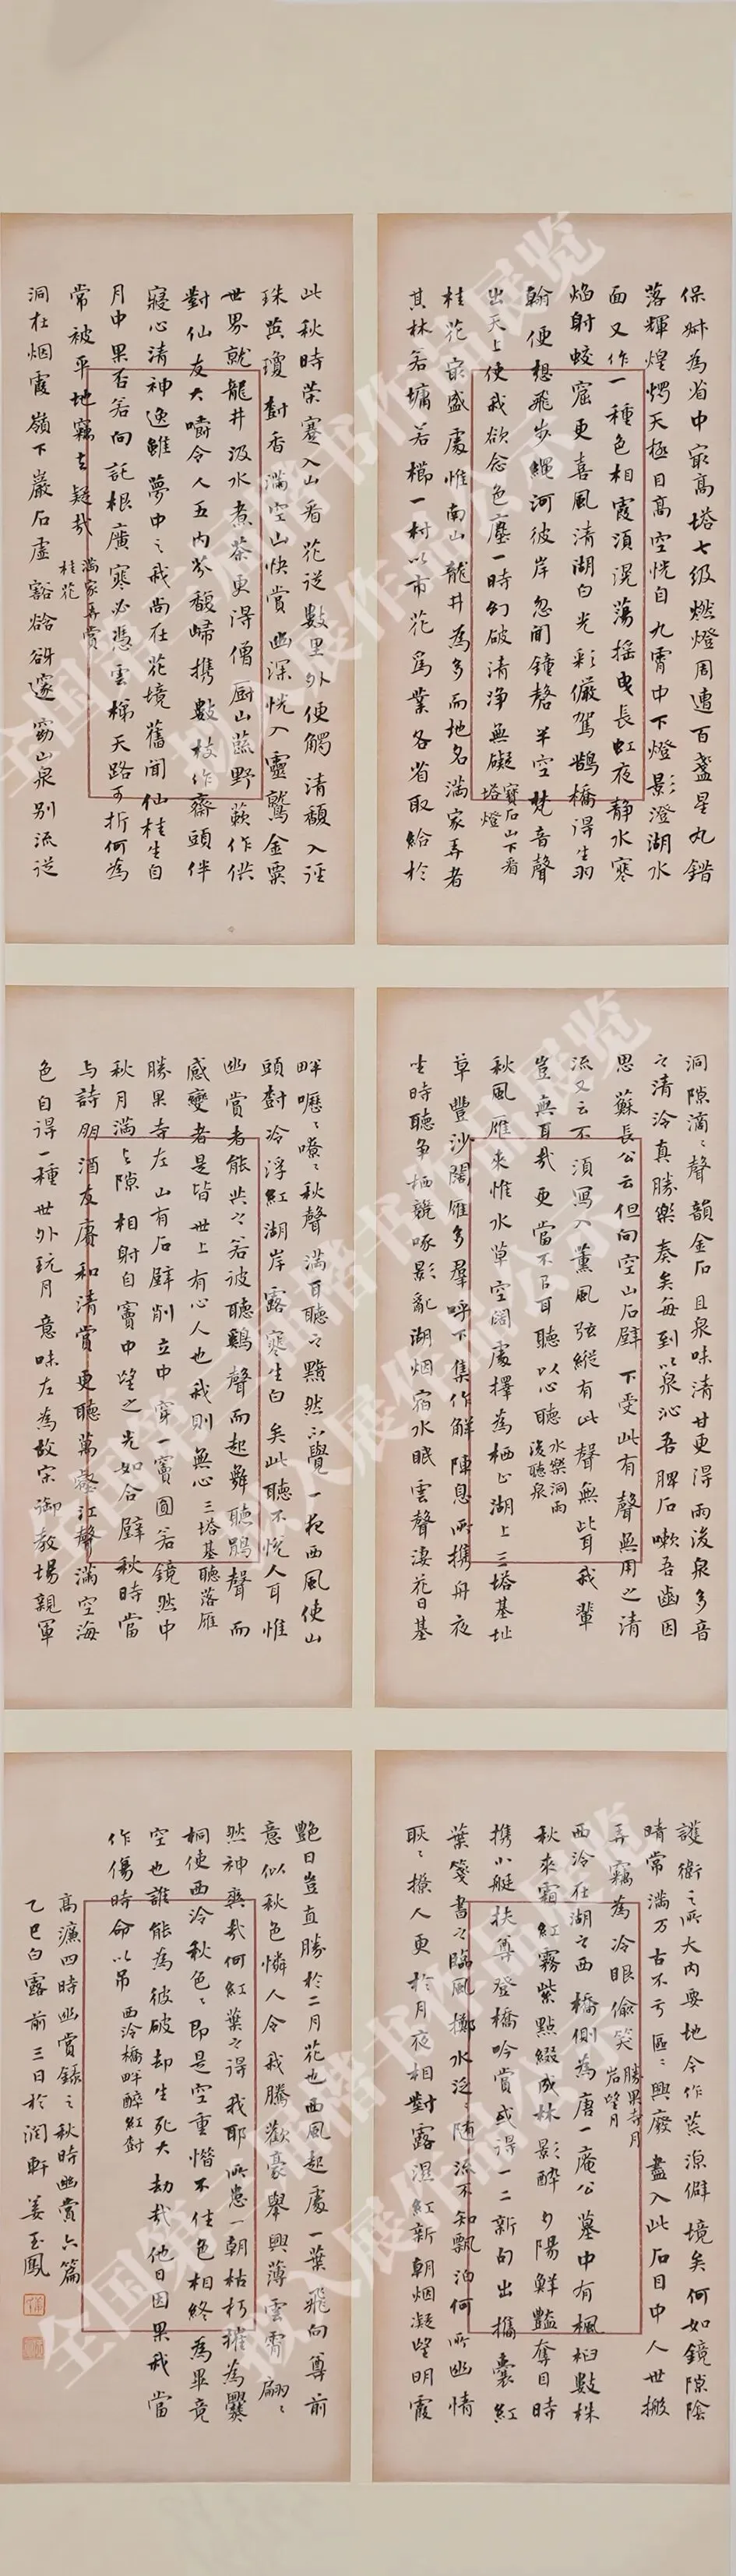 保妳為省中最高塔七級燃燈周遭百盞星丸錯
落輝煌愕天極目高空恍自九霄中下燈影澄湖水
面又作一種色相霞須滉蕩搖曳長虹夜靜水寒
焰射蛟窟更喜風清湖白光彩儼駕鵲橋得生羽
翰便想飛步繩河彼岸忽聞鐘磬半空梵音聲
出天上使我欲念色塵一時幻破清淨無礙 寶石山下看塔燈
桂花最盛處惟南山龍井為多而地名滿家弄者
其林若墉若櫛一村以市花為業各省取給於
此秋時策蹇入山看花從數里外便觸清馥入徑
珠英瓊樹香滿空山快賞幽深恍入靈鷲金粟
世界就龍井汲水煮茶更得僧厨山蔬野蔌作供
對仙友大嚼令人五內芬馥歸携數枝作齋頭伴
寢心清神逸雖夢中之我尚在花境舊聞仙桂生自
月中果否若向託根廣寒必憑雲梯天路可折何為
常被平地竊去疑哉 滿家弄賞桂花
洞在烟霞嶺下巖石虛豁谽谺邃窈山泉別流從
洞隙滴〻聲韻金石且泉味清甘更得雨後泉多音
之清泠真勝樂奏矣每到以泉沁吾脾石嗽吾齒因
思蘇長公云但向空山石壁下受此有聲無用之清
流又云不須寫入薰風弦縱有此聲無此耳我輩
豈無耳哉更當不㠯耳聽以心聽 水樂洞雨後聽泉
秋風雁來惟水草空闊處擇為栖止湖上三塔基址
草豐沙闊雁多羣呼下集作解陣息所携舟夜
坐時聽爭栖競啄影亂湖烟宿水眠雲聲凄花日基
畔嚦〻嘹〻秋聲滿耳聽之黯然不覺一夜西風使山
頭樹冷浮紅湖岸露寒生白矣此聽不悅人耳惟
幽賞者能共之若彼聽鷄聲而起舞聽鵑聲而
感變者是皆世上有心人也我則無心 三塔基聽落雁
勝果寺左山有石壁削立中穿一竇圓若鏡然中
秋月滿與隙相射自竇中望之光如合壁秋時當
與詩朋酒友賡和清賞更聽萬壑江聲滿空海
色自得一種世外玩月意味左為故宋御教場親軍
護衛之所大內要地今作荒涼僻境矣何如鏡隙陰
晴常滿萬古不亏區〻興廢盡入此石目中人世搬
弄竊為冷眼偷笑 勝果寺月岩望月
西泠在湖之西橋側為唐一庵公墓中有楓桕數株
秋來霜紅霧紫點綴成林影醉夕陽鮮豔奪目時
携小艇扶尊登橋吟賞或得一二新句出攜囊紅
葉箋書之臨風擲水泛〻随流不知飄泊何所幽情
耿〻撩人更於月夜相對露濕紅新朝烟凝望明霞
艷日豈直勝於二月花也西風起處一葉飛向尊前
意似秋色憐人令我騰歡豪舉興薄雲霄翩〻
然神爽哉何紅葉之得我耶所患一朝枯朽摧為爨
桐使西泠秋色〻即是空重惜不住色相終為畢竟
空也誰能為彼破却生死大劫哉他日因果我當
作傷時命以吊 西泠橋畔醉紅樹
高濂四時幽賞錄之秋時幽賞六篇
乙巳白露前三日於潤軒姜玉鳳
全国第二届楷书作品展览
拟入展作品公示